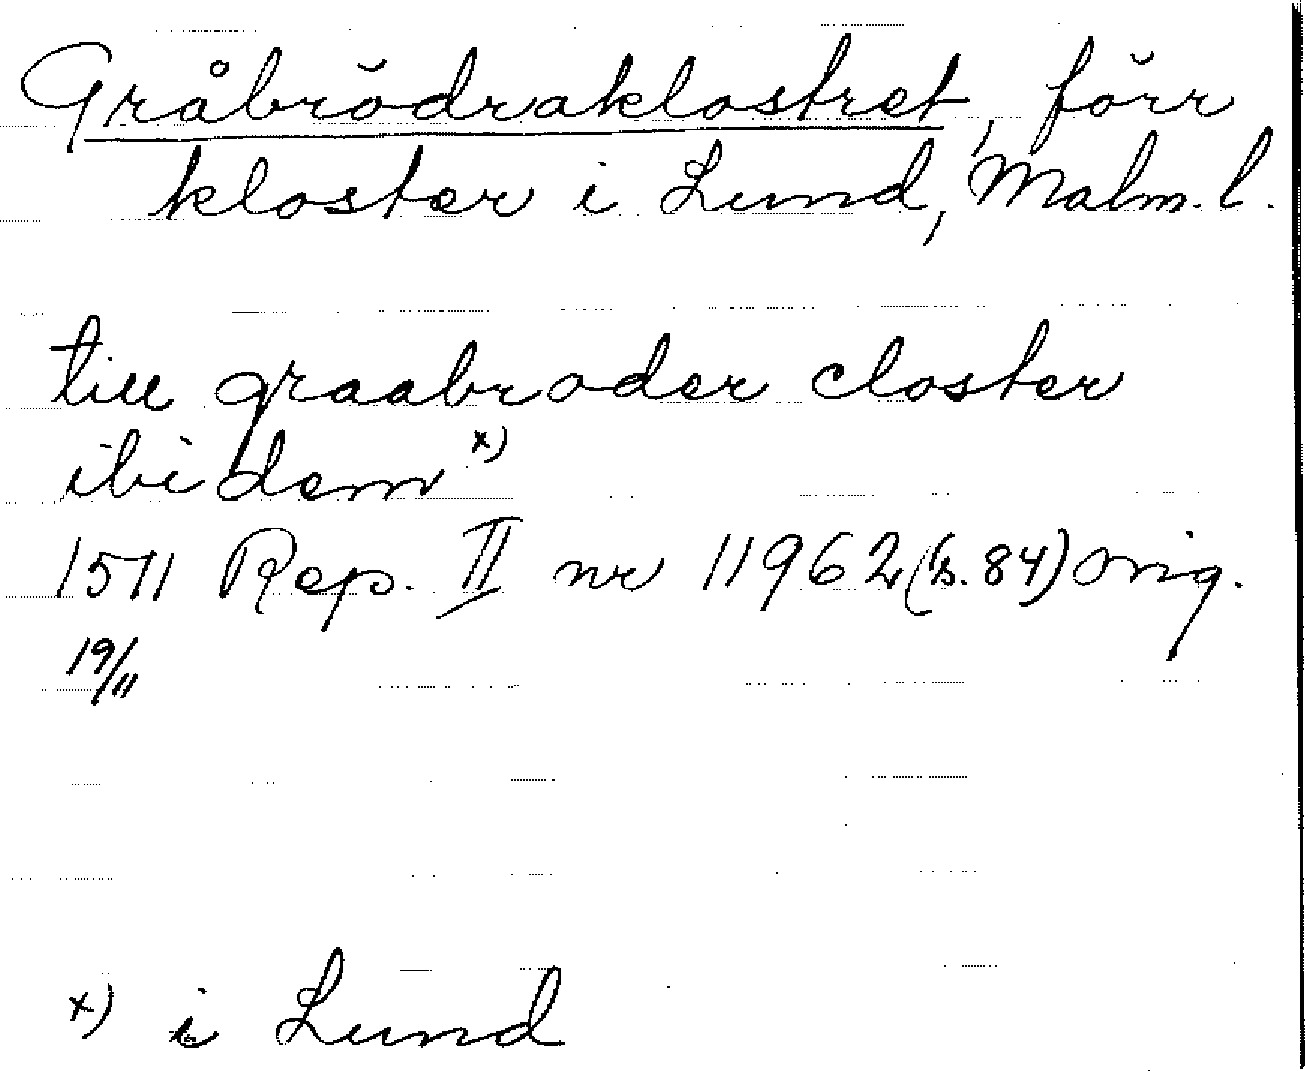 Gråbrödraklostret, förr
kloster i Lund, Malm. l.
till graabroder closter
ibidem x)
1511 Rep. II nr 11962 (s. 84) orig.
19/11
x) i Lund